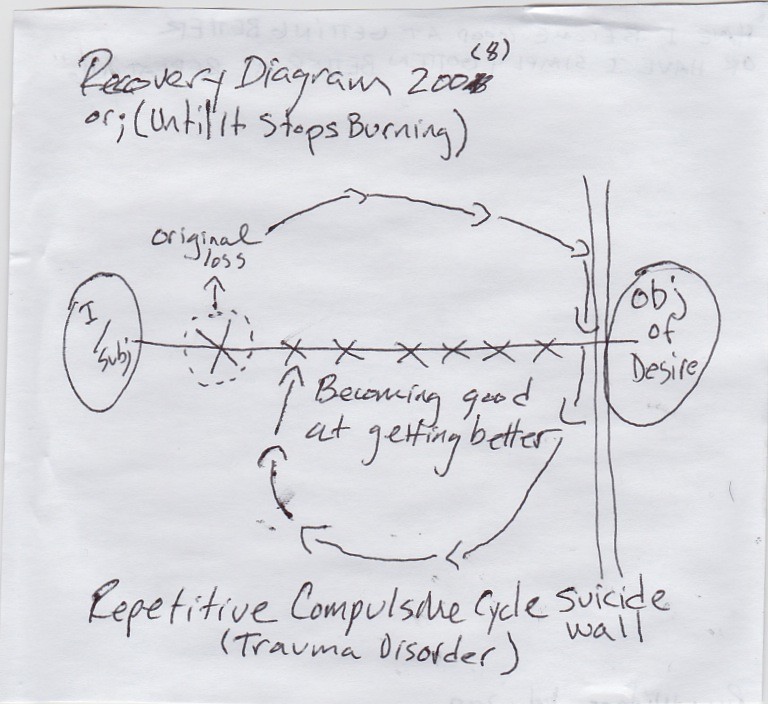 (8)
Recovery Diagram 2008
or; (Until It Stops Burning)
original
loss
I
/
Subj
Obj
of
Desire
Becoming good
at getting better
Repetitive Compulsive Cycle
(Trauma Disorder)
suicide
wall